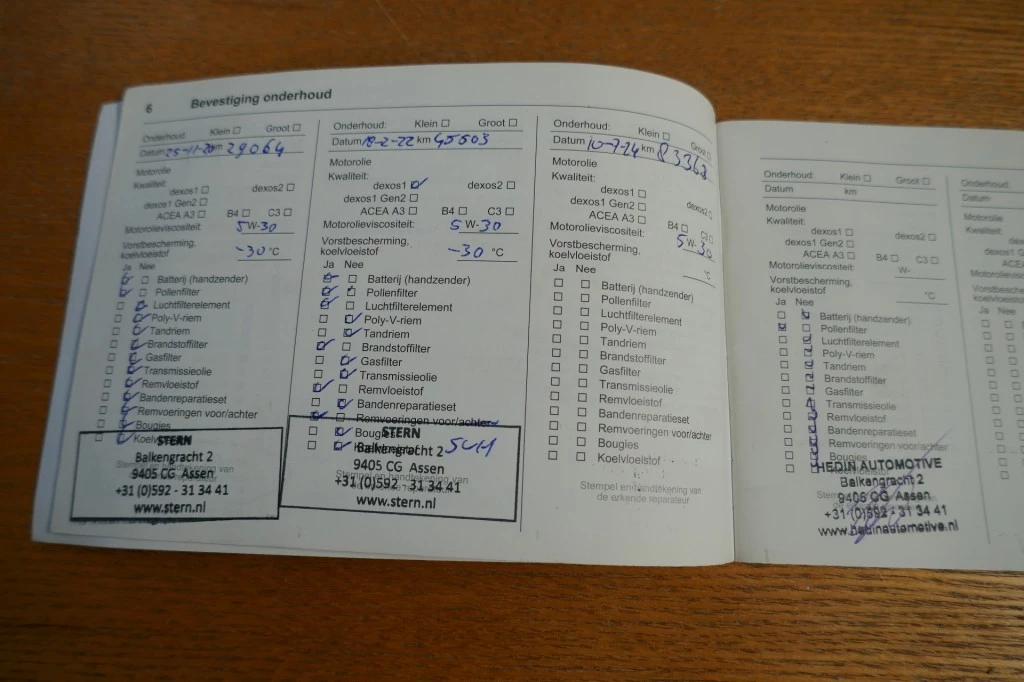 6 Bevestiging onderhoud
Onderhoud: Klein Groot
Datum 25-11-20 km 29064
Motorolie
Kwaliteit:
dexos1 dexos2
dexos1 Gen2
ACEA A3 B4 C3
Motorolieviscositeit: 5 W-30
Vorstbescherming,
koelvloeistof -30 °C
Ja Nee
Batterij (handzender)
Pollenfilter
Luchtfilterelement
Poly-V-riem
Tandriem
Brandstoffilter
Gasfilter
Transmissieolie
Remvloeistof
Bandenreparatieset
Remvoeringen voor/achter
Bougies
STERN
Balkengracht 2
9405 CG Assen
+31 (0)592 - 31 34 41
www.stern.nl
Onderhoud: Klein Groot
Datum 18-2-22 km 45603
Motorolie
Kwaliteit:
dexos1 dexos2
dexos1 Gen2
ACEA A3 B4 C3
Motorolieviscositeit: 5 W-30
Vorstbescherming,
koelvloeistof -30 °C
Ja Nee
Batterij (handzender)
Pollenfilter
Luchtfilterelement
Poly-V-riem
Tandriem
Brandstoffilter
Gasfilter
Transmissieolie
Remvloeistof
Bandenreparatieset
Remvoeringen voor/achter
Bougies
STERN
Balkengracht 2
9405 CG Assen
Stempel en handtekening van
+31 (0)592 - 31 34 41
www.stern.nl
Onderhoud: Klein Groot
Datum 10-7-24 km 83368
Motorolie
Kwaliteit:
dexos1 dexos2
dexos1 Gen2
ACEA A3 B4 C3
Motorolieviscositeit: 5 W-30
Vorstbescherming,
koelvloeistof °C
Ja Nee
Batterij (handzender)
Pollenfilter
Luchtfilterelement
Poly-V-riem
Tandriem
Brandstoffilter
Gasfilter
Transmissieolie
Remvloeistof
Bandenreparatieset
Remvoeringen voor/achter
Bougies
Koelvloeistof
Stempel en handtekening van
de erkende reparateur
Onderhoud: Klein Groot
Datum km
Motorolie
Kwaliteit:
dexos1 dexos2
dexos1 Gen2
ACEA A3 B4 C3
Motorolieviscositeit: W-
Vorstbescherming,
koelvloeistof °C
Ja Nee
Batterij (handzender)
Pollenfilter
Luchtfilterelement
Poly-V-riem
Tandriem
Brandstoffilter
Gasfilter
Transmissieolie
Remvloeistof
Bandenreparatieset
Remvoeringen voor/achter
Bougies
HEDIN AUTOMOTIVE
Balkengracht 2
9405 CG Assen
+31 (0)592 - 31 34 41
www.hedinautomotive.nl
Onderhoud:
Datum
Motorolie
Kwaliteit:
Ja Nee